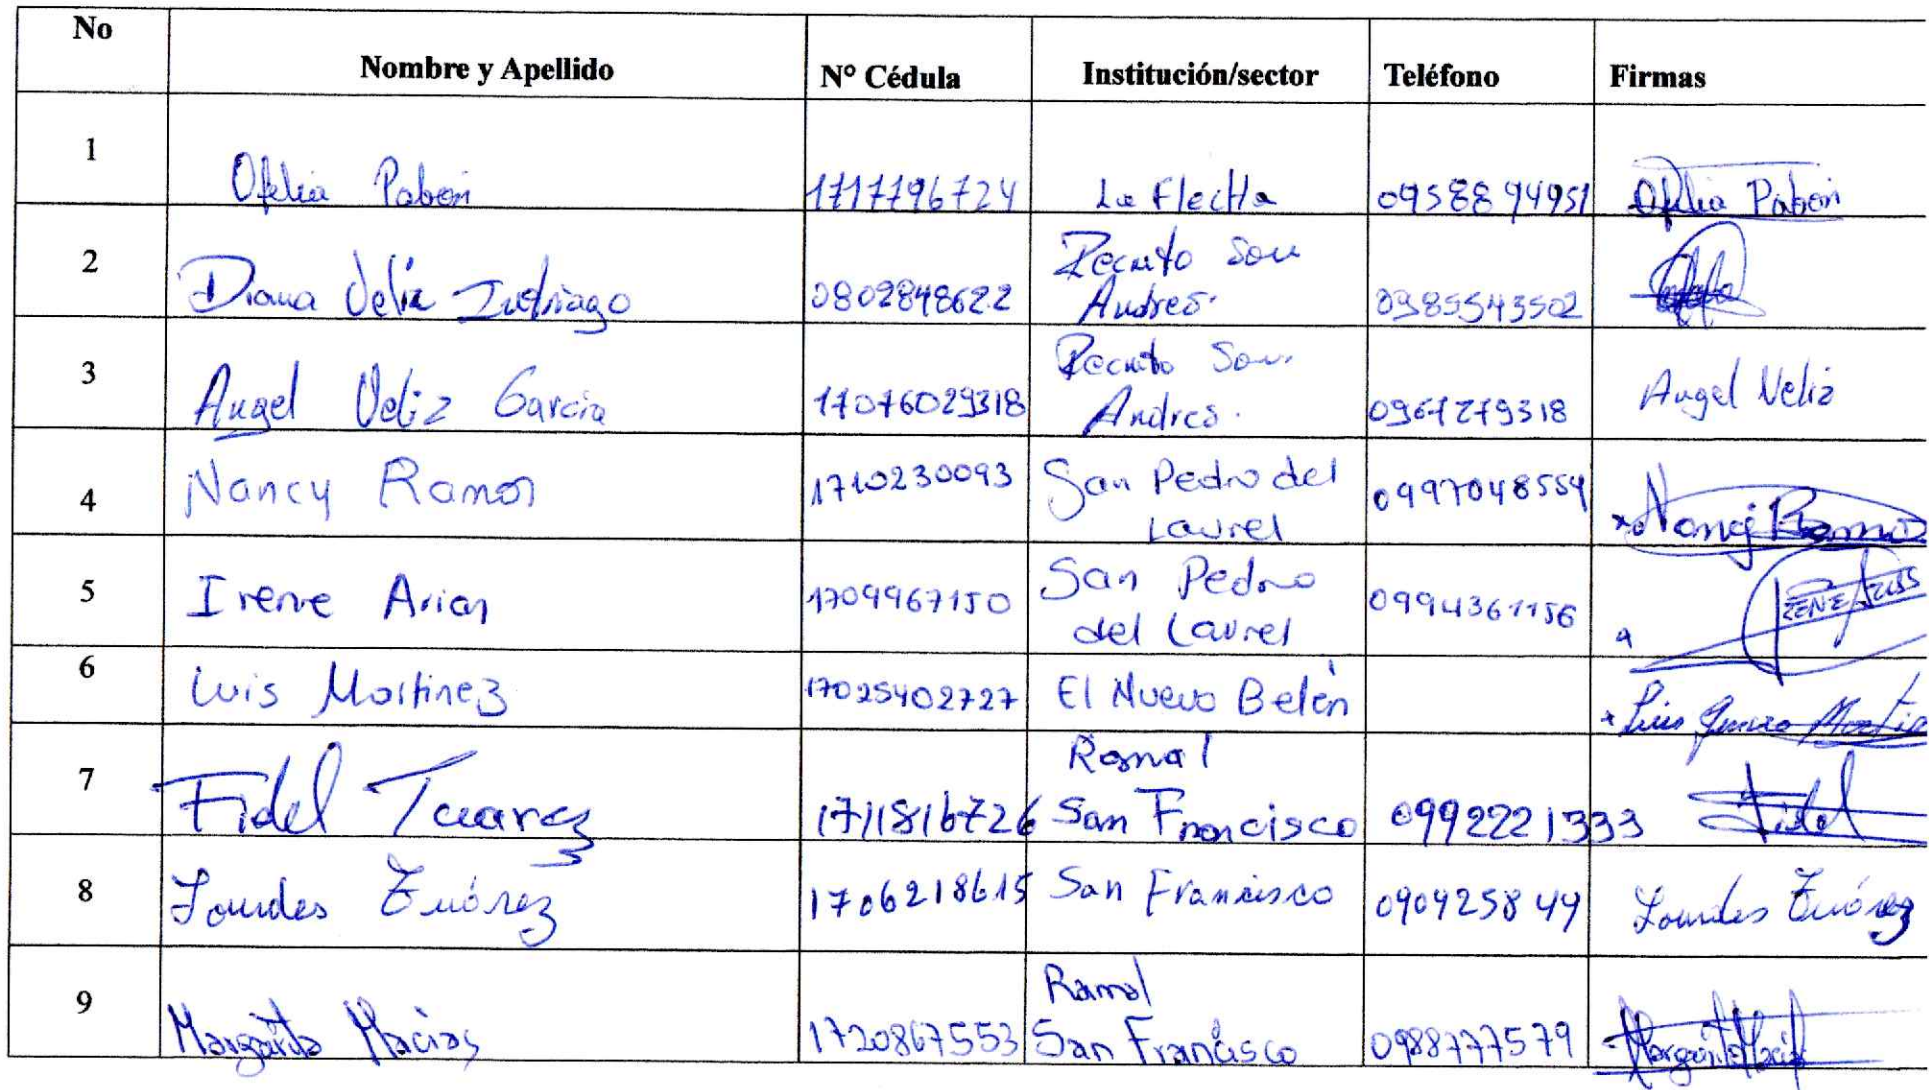 No Nombre y Apellido N° Cédula Institución/sector Teléfono Firmas
1 Ofelia Pabon 1717796724 La Flecha 0958894951 Ofelia Pabon
2 Diana Veliz Intriago 0802848622 Recinto San Andres. 0985543502
3 Angel Veliz Garcia 17076029318 Recinto San Andres. 0967279318 Angel Veliz
4 Nancy Ramos 1710230093 San Pedro del Laurel 0997048554 Nancy Ramos
5 Irene Arias 1709967150 San Pedro del Laurel 0994361156
6 Luis Martinez 17025402727 El Nuevo Belén Luis
7 Fidel Tuarez 1711816726 Ramal San Francisco 0992221333 Fidel
8 Lourdes Zuórez 1706218615 San Francisco 090925849 Lourdes Zuórez
9 Margarita Macias 1720867553 Ramal San Francisco 0988777579 Margarita Macias